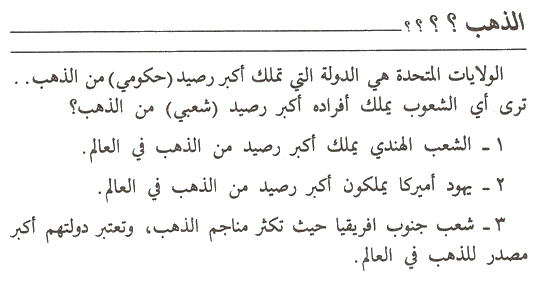 الذهب ؟ ؟ ؟ ؟
الولايات المتحدة هي الدولة التي تملك أكبر رصيد (حكومي) من الذهب . .
ترى أي الشعوب يملك أفراده أكبر رصيد (شعبي) من الذهب؟
١ ـ الشعب الهندي يملك أكبر رصيد من الذهب في العالم.
٢ ـ يهود أميركا يملكون أكبر رصيد من الذهب في العالم.
٣ ـ شعب جنوب افريقيا حيث تكثر مناجم الذهب، وتعتبر دولتهم أكبر
مصدر للذهب في العالم.